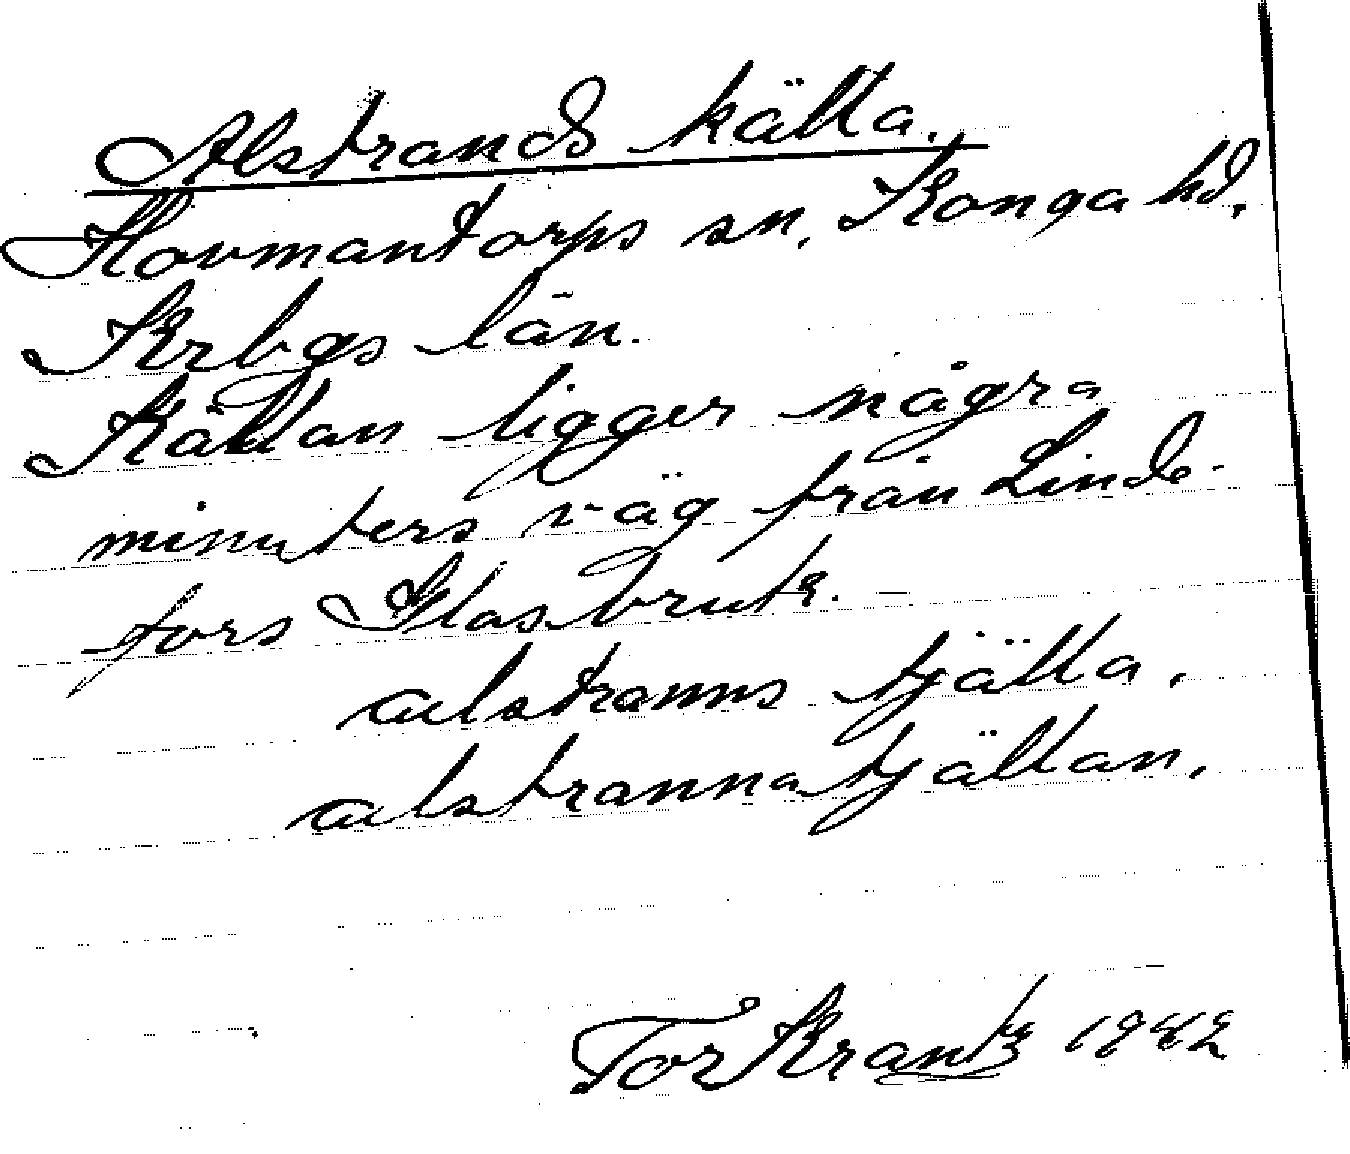 Alstrands källa.
Hovmantorps sn, Konga hd,
Krbgs län.
Källan ligger några
minuters väg från Linde-
fors Glasbruk. —
alstranns tjälla,
alstrannatjällan,
Tor Krantz 1942